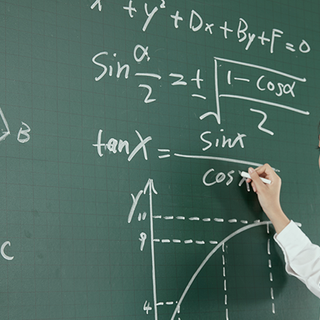 x + y² + Dx + By + F = 0
Sin α/2 = ± √(1 - cosα / 2)
B
tanX = sinx / cosx
y
10
9
C
4